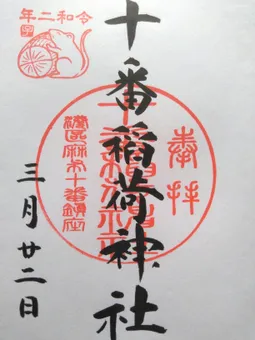 奉拝
十番稲荷神社
港区麻布十番鎮座
令和二年
三月廿二日